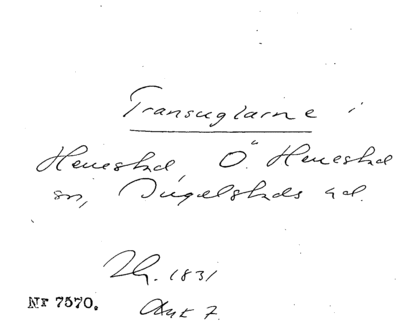 Transuglarne i
Henestad, Ö. Henestad
sn, Ingelstads hd.
Zh. 1831
Nr 7570. Auk 7.